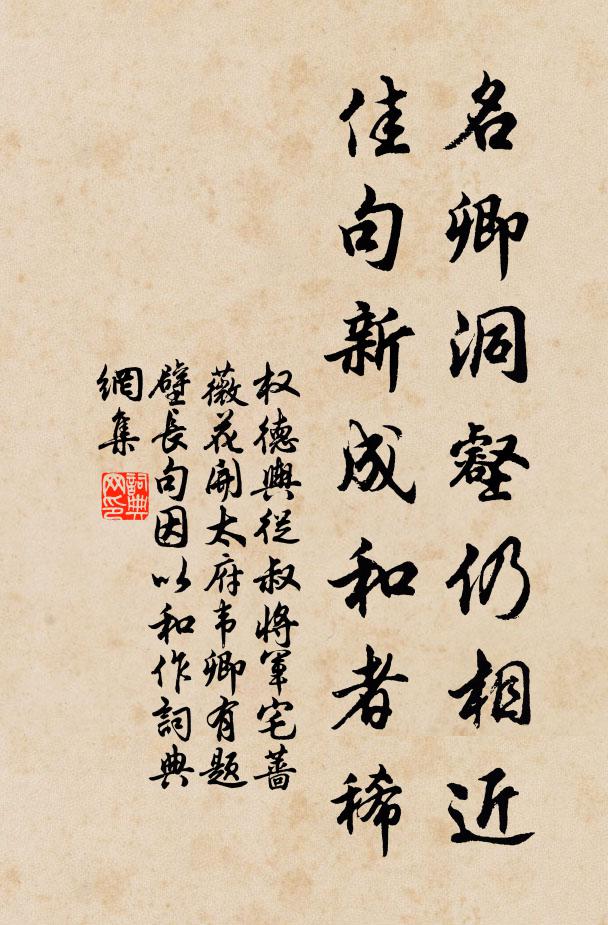 名卿洞壑仍相近
佳句新成和者稀
权德舆從叔將軍宅薔
薇花開太府韦卿有题
壁長句因以和作詞典
網集
詞典网印